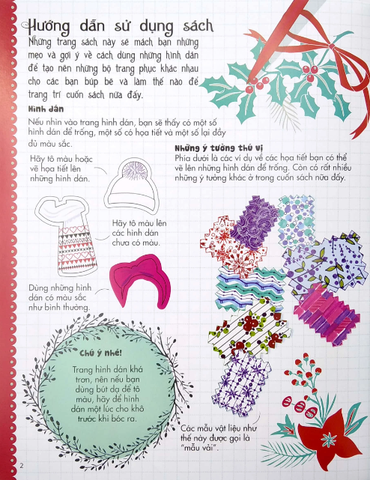 Hướng dẫn sử dụng sách
Những trang sách này sẽ mách bạn những
mẹo và gợi ý về cách dùng những hình dán
để tạo nên những bộ trang phục khác nhau
cho các bạn búp bê và làm thế nào để
trang trí cuốn sách nữa đấy.
Hình dán
Nếu nhìn vào trang hình dán, bạn sẽ thấy có một số
hình dán để trống, một số có họa tiết và một số lại đầy
đủ màu sắc.
Hãy tô màu hoặc
vẽ họa tiết lên
những hình dán.
Hãy tô màu lên
các hình dán
chưa có màu.
Dùng những hình
dán có màu sắc
như bình thường.
Những ý tưởng thú vị
Phía dưới là các ví dụ về các họa tiết bạn có thể
vẽ lên những hình dán để trống. Còn có rất nhiều
những ý tưởng khác ở trong cuốn sách nữa đấy.
Chú ý nhé!
Trang hình dán khá
trơn, nên nếu bạn
dùng bút dạ để tô
màu, hãy để hình
dán một lúc cho khô
trước khi bóc ra.
Các mẫu vật liệu như
thế này được gọi là
"mẫu vải".
2